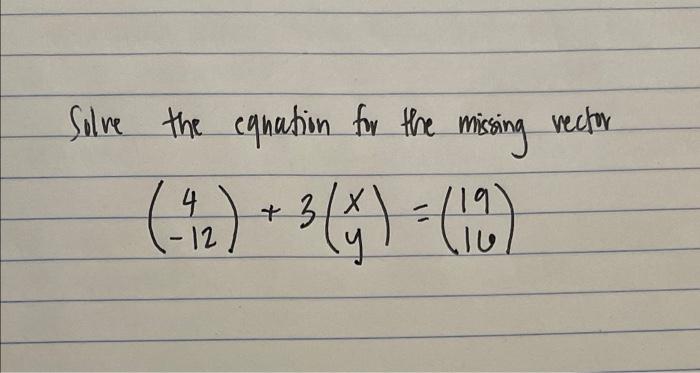 Solve the equation for the missing vector
(4 -12) + 3(x y) = (19 16)